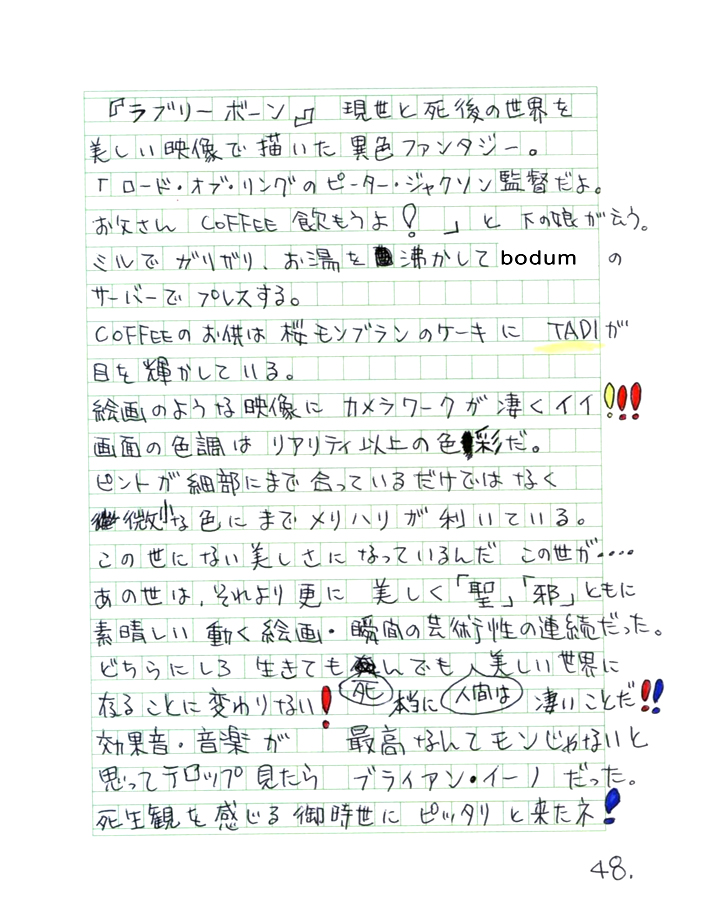 『ラブリーボーン』 現世と死後の世界を
美しい映像で描いた異色ファンタジー。
「ロード・オブ・リングのピーター・ジャクソン監督だよ。
お父さん COFFEE 飲もうよ!」と 下の娘が云う。
ミルでガリガリ、お湯を沸かして bodum の
サーバーでプレスする。
COFFEEのお供は桜モンブランのケーキに TADIが
目を輝かしている。
絵画のような映像に カメラワークが凄くイイ!!!
画面の色調はリアリティ以上の色彩だ。
ピントが細部にまで合っているだけではなく
微小な色にまでメリハリが利いている。
この世にない美しさになっているんだ この世が‥‥
あの世は、それより更に 美しく「聖」「邪」ともに
素晴しい 動く絵画・瞬間の芸術性の連続だった。
どちらにしろ 生きても死んでも、美しい世界に
在ることに変わりない! 本当に人間は凄いことだ!!
効果音・音楽が 最高なんてモンじゃないと
思ってテロップ見たら ブライアン・イーノ だった。
死生観を感じる御時世にピッタリと来たネ!
48.